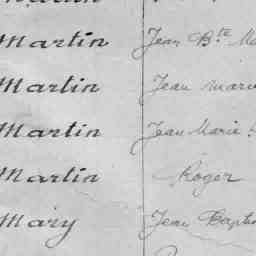 Martin Jean Bte
Martin Jean Marie
Martin Jean Marie
Martin Roger
Mary Jean Baptis